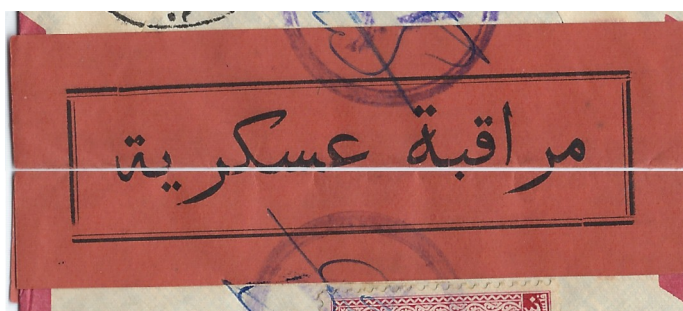 مراقبة عسكرية